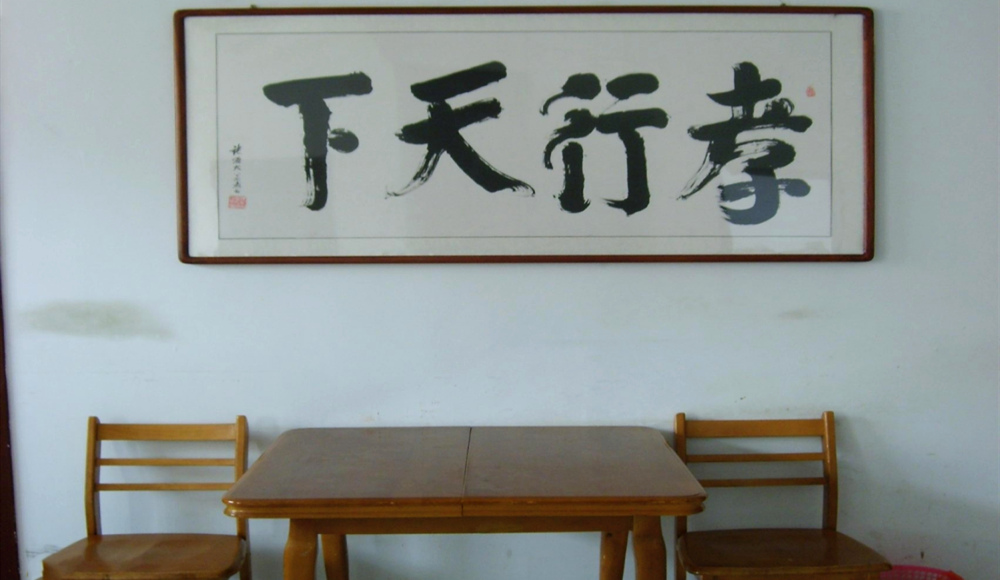 孝行天下